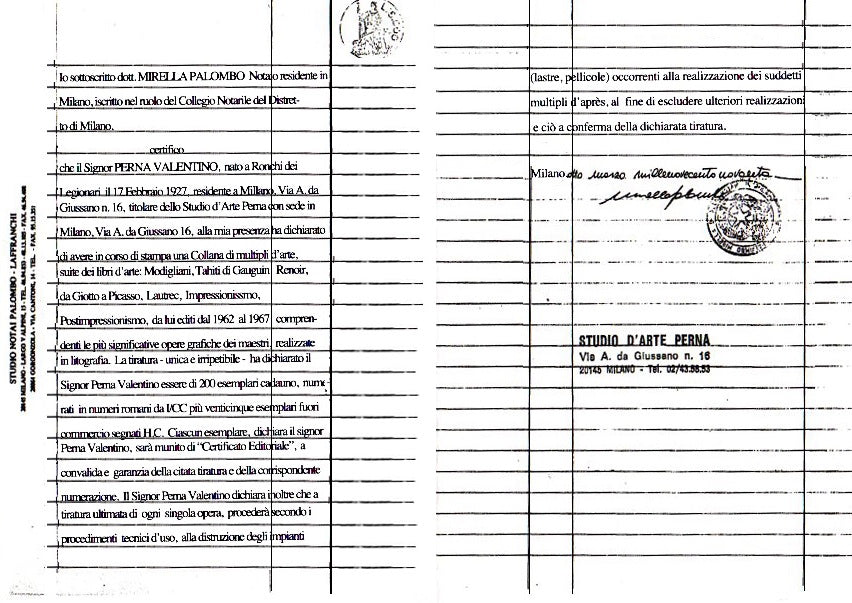 STUDIO NOTAI PALOMBO - LAFFRANCHI
Io sottoscritto dott. MIRELLA PALOMBO Notaio residente in
Milano, iscritto nel ruolo del Collegio Notarile del Distret-
to di Milano,
certifico
che il Signor PERNA VALENTINO, nato a Ronchi dei
Legionari, il 17 Febbraio 1927, residente a Millano, Via A. da
Giussano n. 16, titolare dello Studio d'Arte Perna con sede in
Milano, Via A. da Giussano 16, alla mia presenza ha dichiarato
di avere in corso di stampa una Collana di multipli d'arte,
suite dei libri d'arte: Modigliani, Tahiti di Gauguin Renoir,
da Giotto a Picasso, Lautrec, Impressionissmo,
Postimpressionismo, da lui editi dal 1962 al 1967 compren-
denti le più significative opere grafiche dei maestri, realizzate
in litografia. La tiratura - unica e irripetibile - ha dichiarato il
Signor Perna Valentino essere di 200 esemplari cadauno, nume-
rati in numeri romani da I/CC più venticinque esemplari fuori
commercio segnati H.C. Ciascun esemplare, dichiara il signor
Perna Valentino, sarà munito di "Certificato Editoriale", a
convalida e garanzia della citata tiratura e della corrispondente
numerazione. Il Signor Perna Valentino dichiara inoltre che a
tiratura ultimata di ogni singola opera, procederà secondo i
procedimenti tecnici d'uso, alla distruzione degli impianti
(lastre, pellicole) occorrenti alla realizzazione dei suddetti
multipli d'après, al fine di escludere ulteriori realizzazioni
e ciò a conferma della dichiarata tiratura.
Milano otto marzo millenovecentonovanta
STUDIO D'ARTE PERNA
Via A. da Giussano n. 16
20145 MILANO - Tel. 02/43.58.53